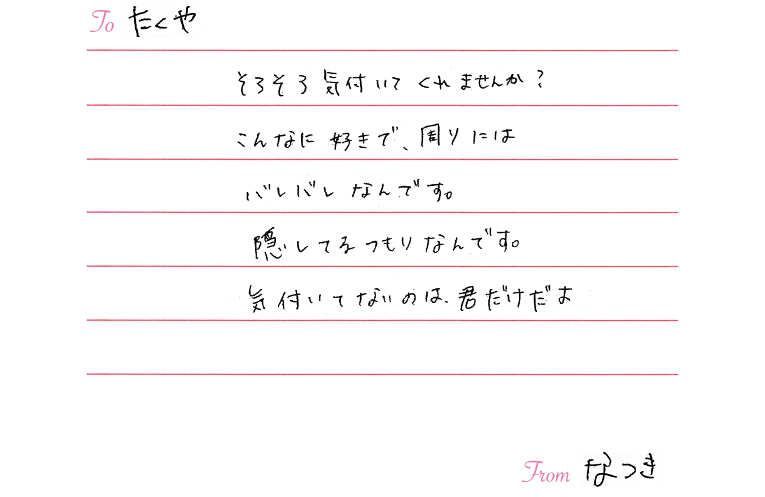 To たくや
そろそろ気付いてくれませんか?
こんなに好きで、周りには
バレバレなんです。
隠してるつもりなんです。
気付いてないのは、君だけだよ
From なつき